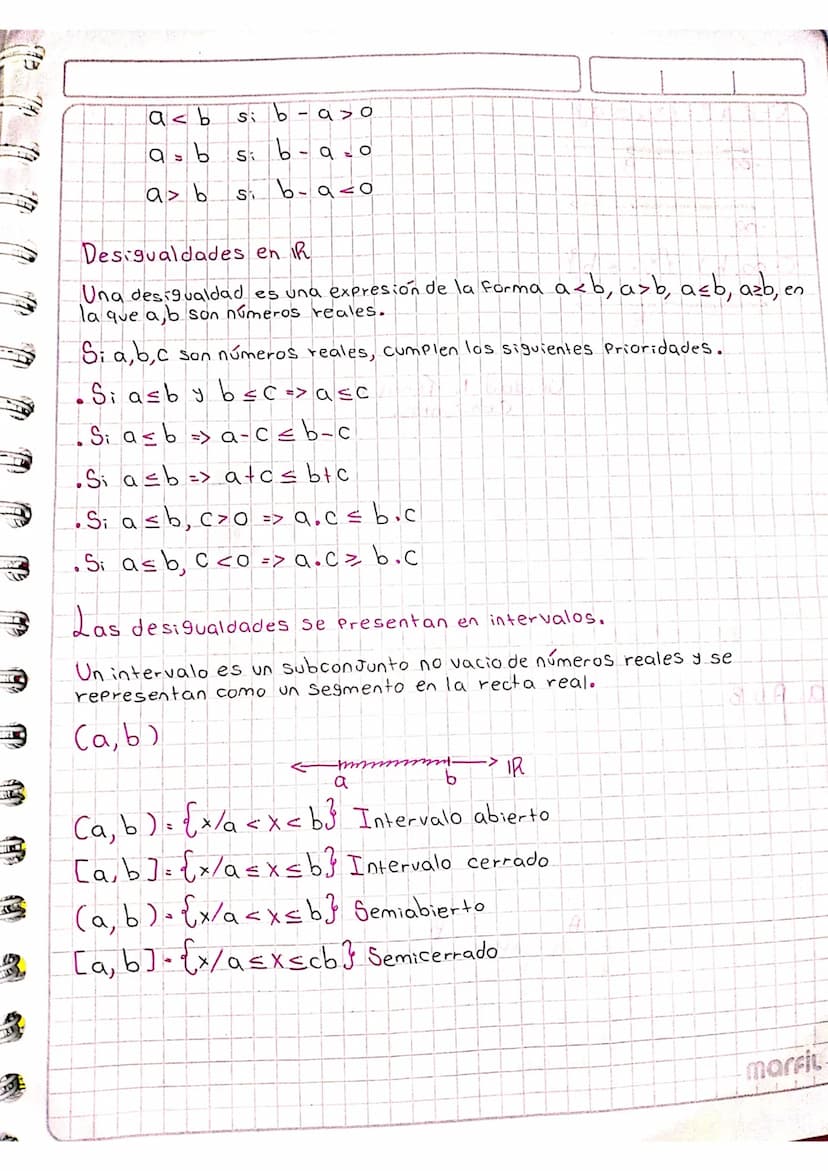 a < b si b - a > 0
a = b si b - a = 0
a > b si b - a < 0
Desigualdades en ℝ
Una desigualdad es una expresión de la forma a<b, a>b, a≤b, a≥b, en
la que a,b son números reales.
Si a,b,c son números reales, cumplen los siguientes Prioridades.
. Si a≤b y b≤c => a≤c
. Si a≤b => a-c ≤ b-c
. Si a≤b => a+c ≤ b+c
. Si a≤b, c>0 => a.c ≤ b.c
. Si a≤b, c<0 => a.c ≥ b.c
Las desigualdades se presentan en intervalos.
Un intervalo es un subconjunto no vacio de números reales y se
representan como un segmento en la recta real.
(a,b)
a b ℝ
(a,b) = {x/a < x < b} Intervalo abierto
[a,b] = {x/a ≤ x ≤ b} Intervalo cerrado
(a,b) = {x/a < x ≤ b} Semiabierto
[a,b] = {x/a ≤ x ≤ cb} Semicerrado
marfil